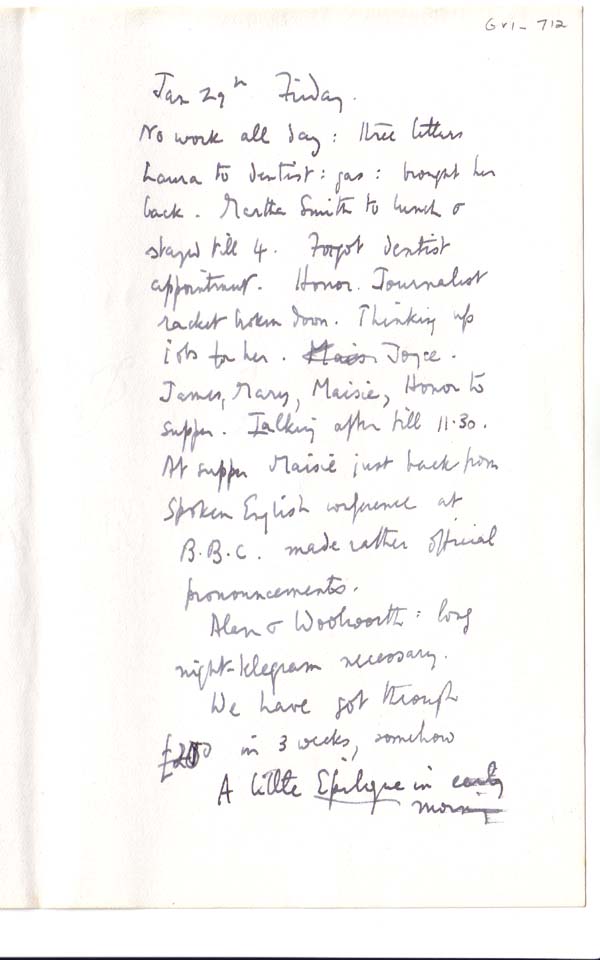 Gv1- 712
Jan 29th Friday.
No work all day: three letters
Laura to dentist: gas: brought her
back. Martha Smith to lunch &
stayed till 4. Forgot dentist
appointment. Honor. Journalist
racket broken down. Thinking up
jobs for her. Joyce.
James, Mary, Maisie, Honor to
supper. Talking after till 11.30.
At supper Maisie just back from
Spoken English conference at
B.B.C. made rather official
pronouncements.
Alan & Woolworth: long
night-telegram necessary.
We have got through
in 3 weeks, somehow
A little Epilogue in early
morning